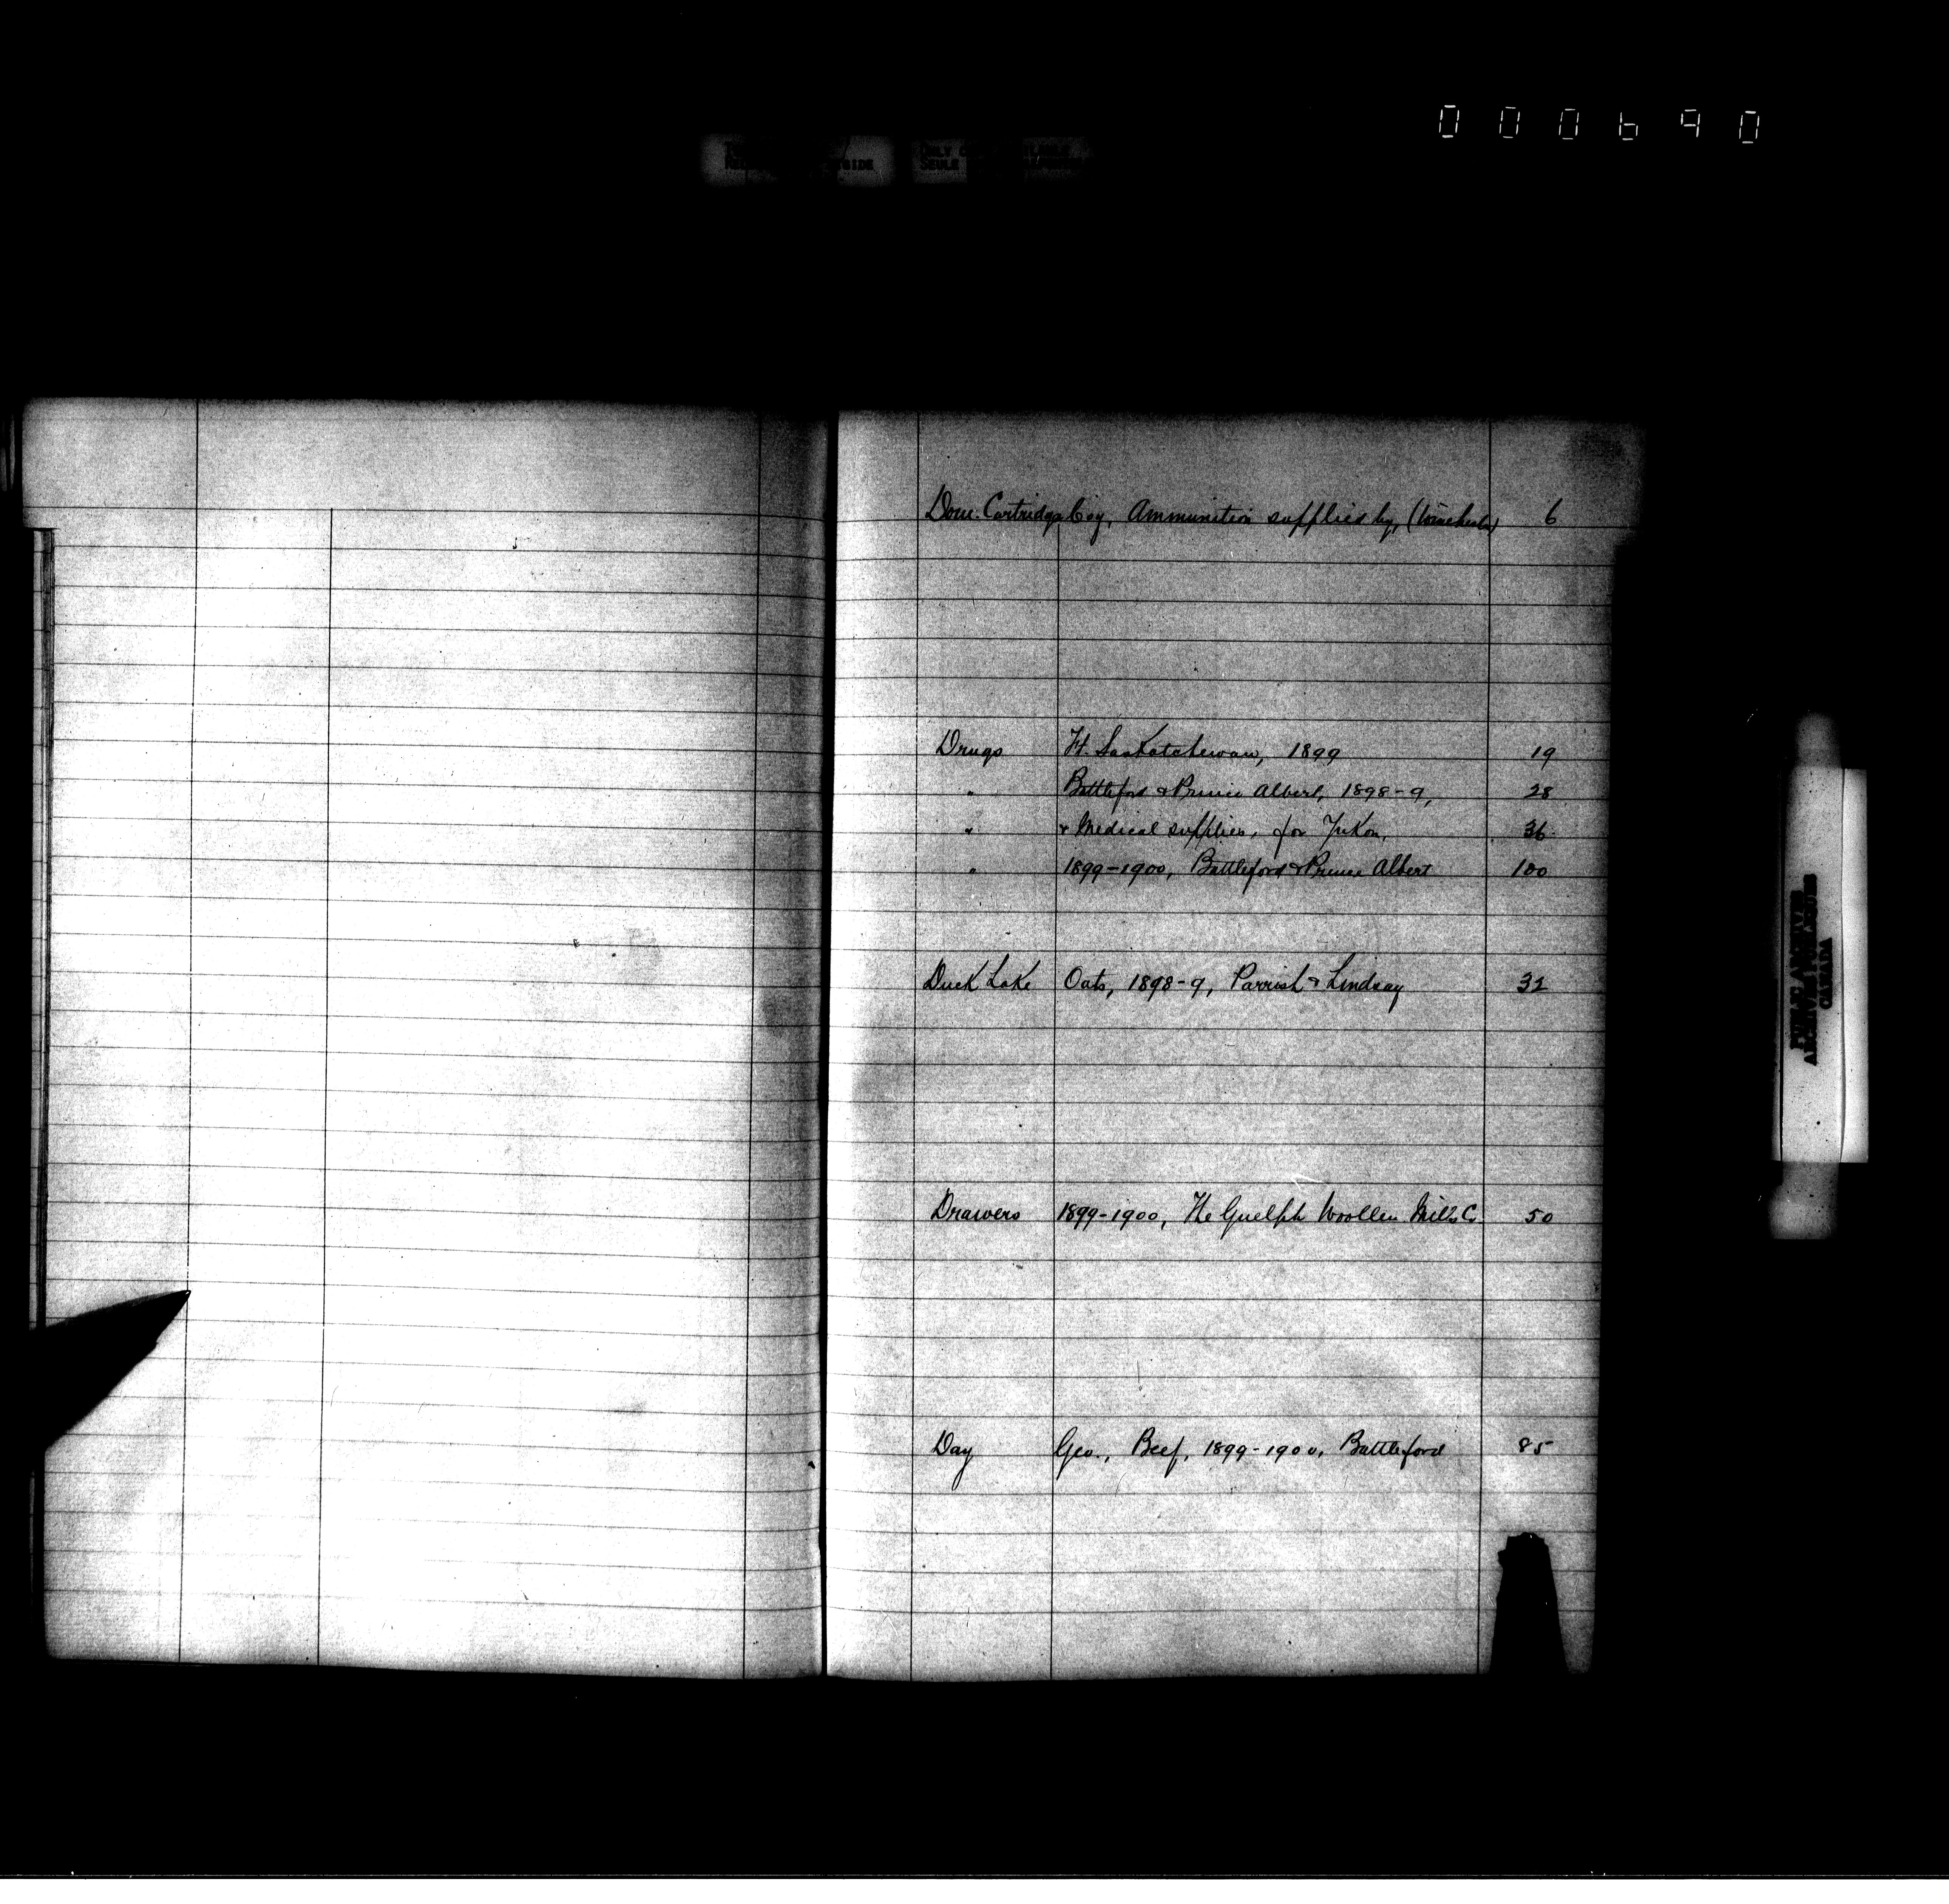 000690
ONLY
SEULE
Dom. Cartridge Coy, Ammunition supplied by, (Winchester) 6
Drugs Ft. Saskatchewan, 1899 19
" Battleford & Prince Albert, 1898-9, 28
" & Medical supplies, for Yukon, 36
" 1899-1900, Battleford & Prince Albert 100
Duck Lake Oats, 1898-9, Parrish & Lindsay 32
Drawers 1899-1900, The Guelph Woollen Mills Co. 50
Day Geo., Beef, 1899-1900, Battleford 85
PUBLIC ARCHIVES
ARCHIVES PUBLIQUES
CANADA